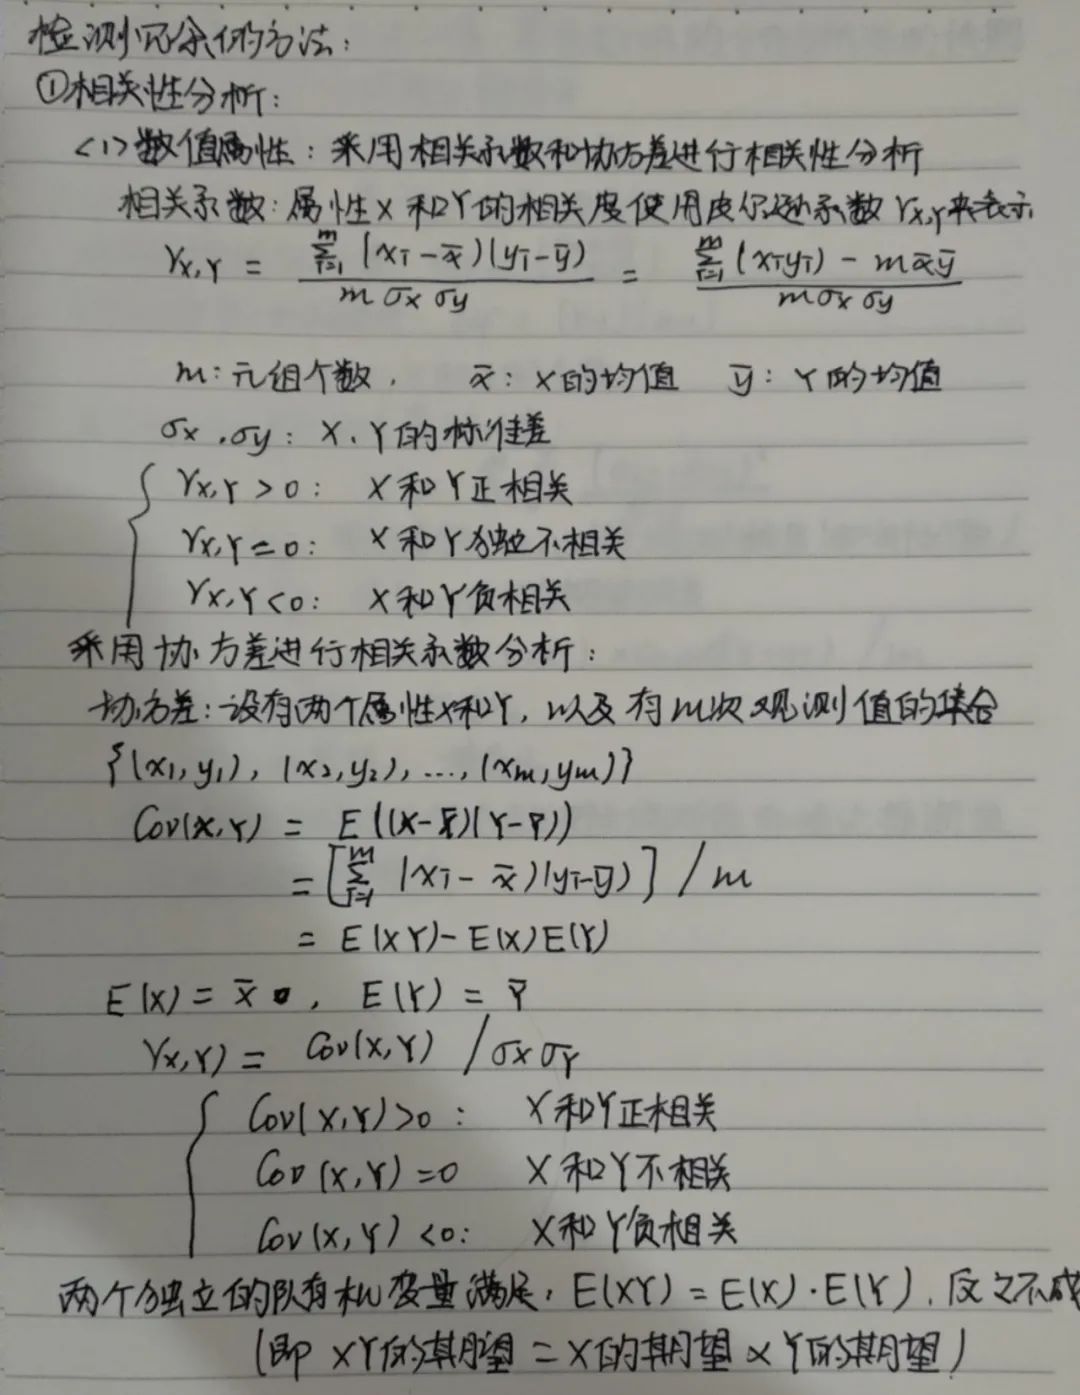 检测冗余的方法：
①相关性分析：
<1>数值属性：采用相关系数和协方差进行相关性分析
相关系数：属性X和Y的相关度使用皮尔逊系数 rX,Y来表示
rX,Y = ∑_{i=1}^{m} (xi-x̄)(yi-ȳ) / mσxσy = ∑_{i=1}^{m} (xiyi) - mx̄ȳ / mσxσy
m：元组个数， x̄：X的均值 ȳ：Y的均值
σx，σy：X、Y的标准差
rX,Y > 0： X和Y正相关
rX,Y = 0： X和Y独立不相关
rX,Y < 0： X和Y负相关
采用协方差进行相关系数分析：
协方差：设有两个属性X和Y，以及有m次观测值的集合
{(x1,y1), (x2,y2), ..., (xm,ym)}
Cov(X,Y) = E((X-X̄)(Y-Ȳ))
= [∑_{i=1}^{m} (xi-x̄)(yi-ȳ)] / m
= E(XY) - E(X)E(Y)
E(X) = x̄ , E(Y) = Ȳ
rX,Y) = Cov(X,Y) / σXσY
Cov(X,Y) > 0： X和Y正相关
Cov(X,Y) = 0 X和Y不相关
Cov(X,Y) < 0： X和Y负相关
两个独立的随机变量满足，E(XY) = E(X)·E(Y)，反之不成
(即 XY的期望 = X的期望 × Y的期望)